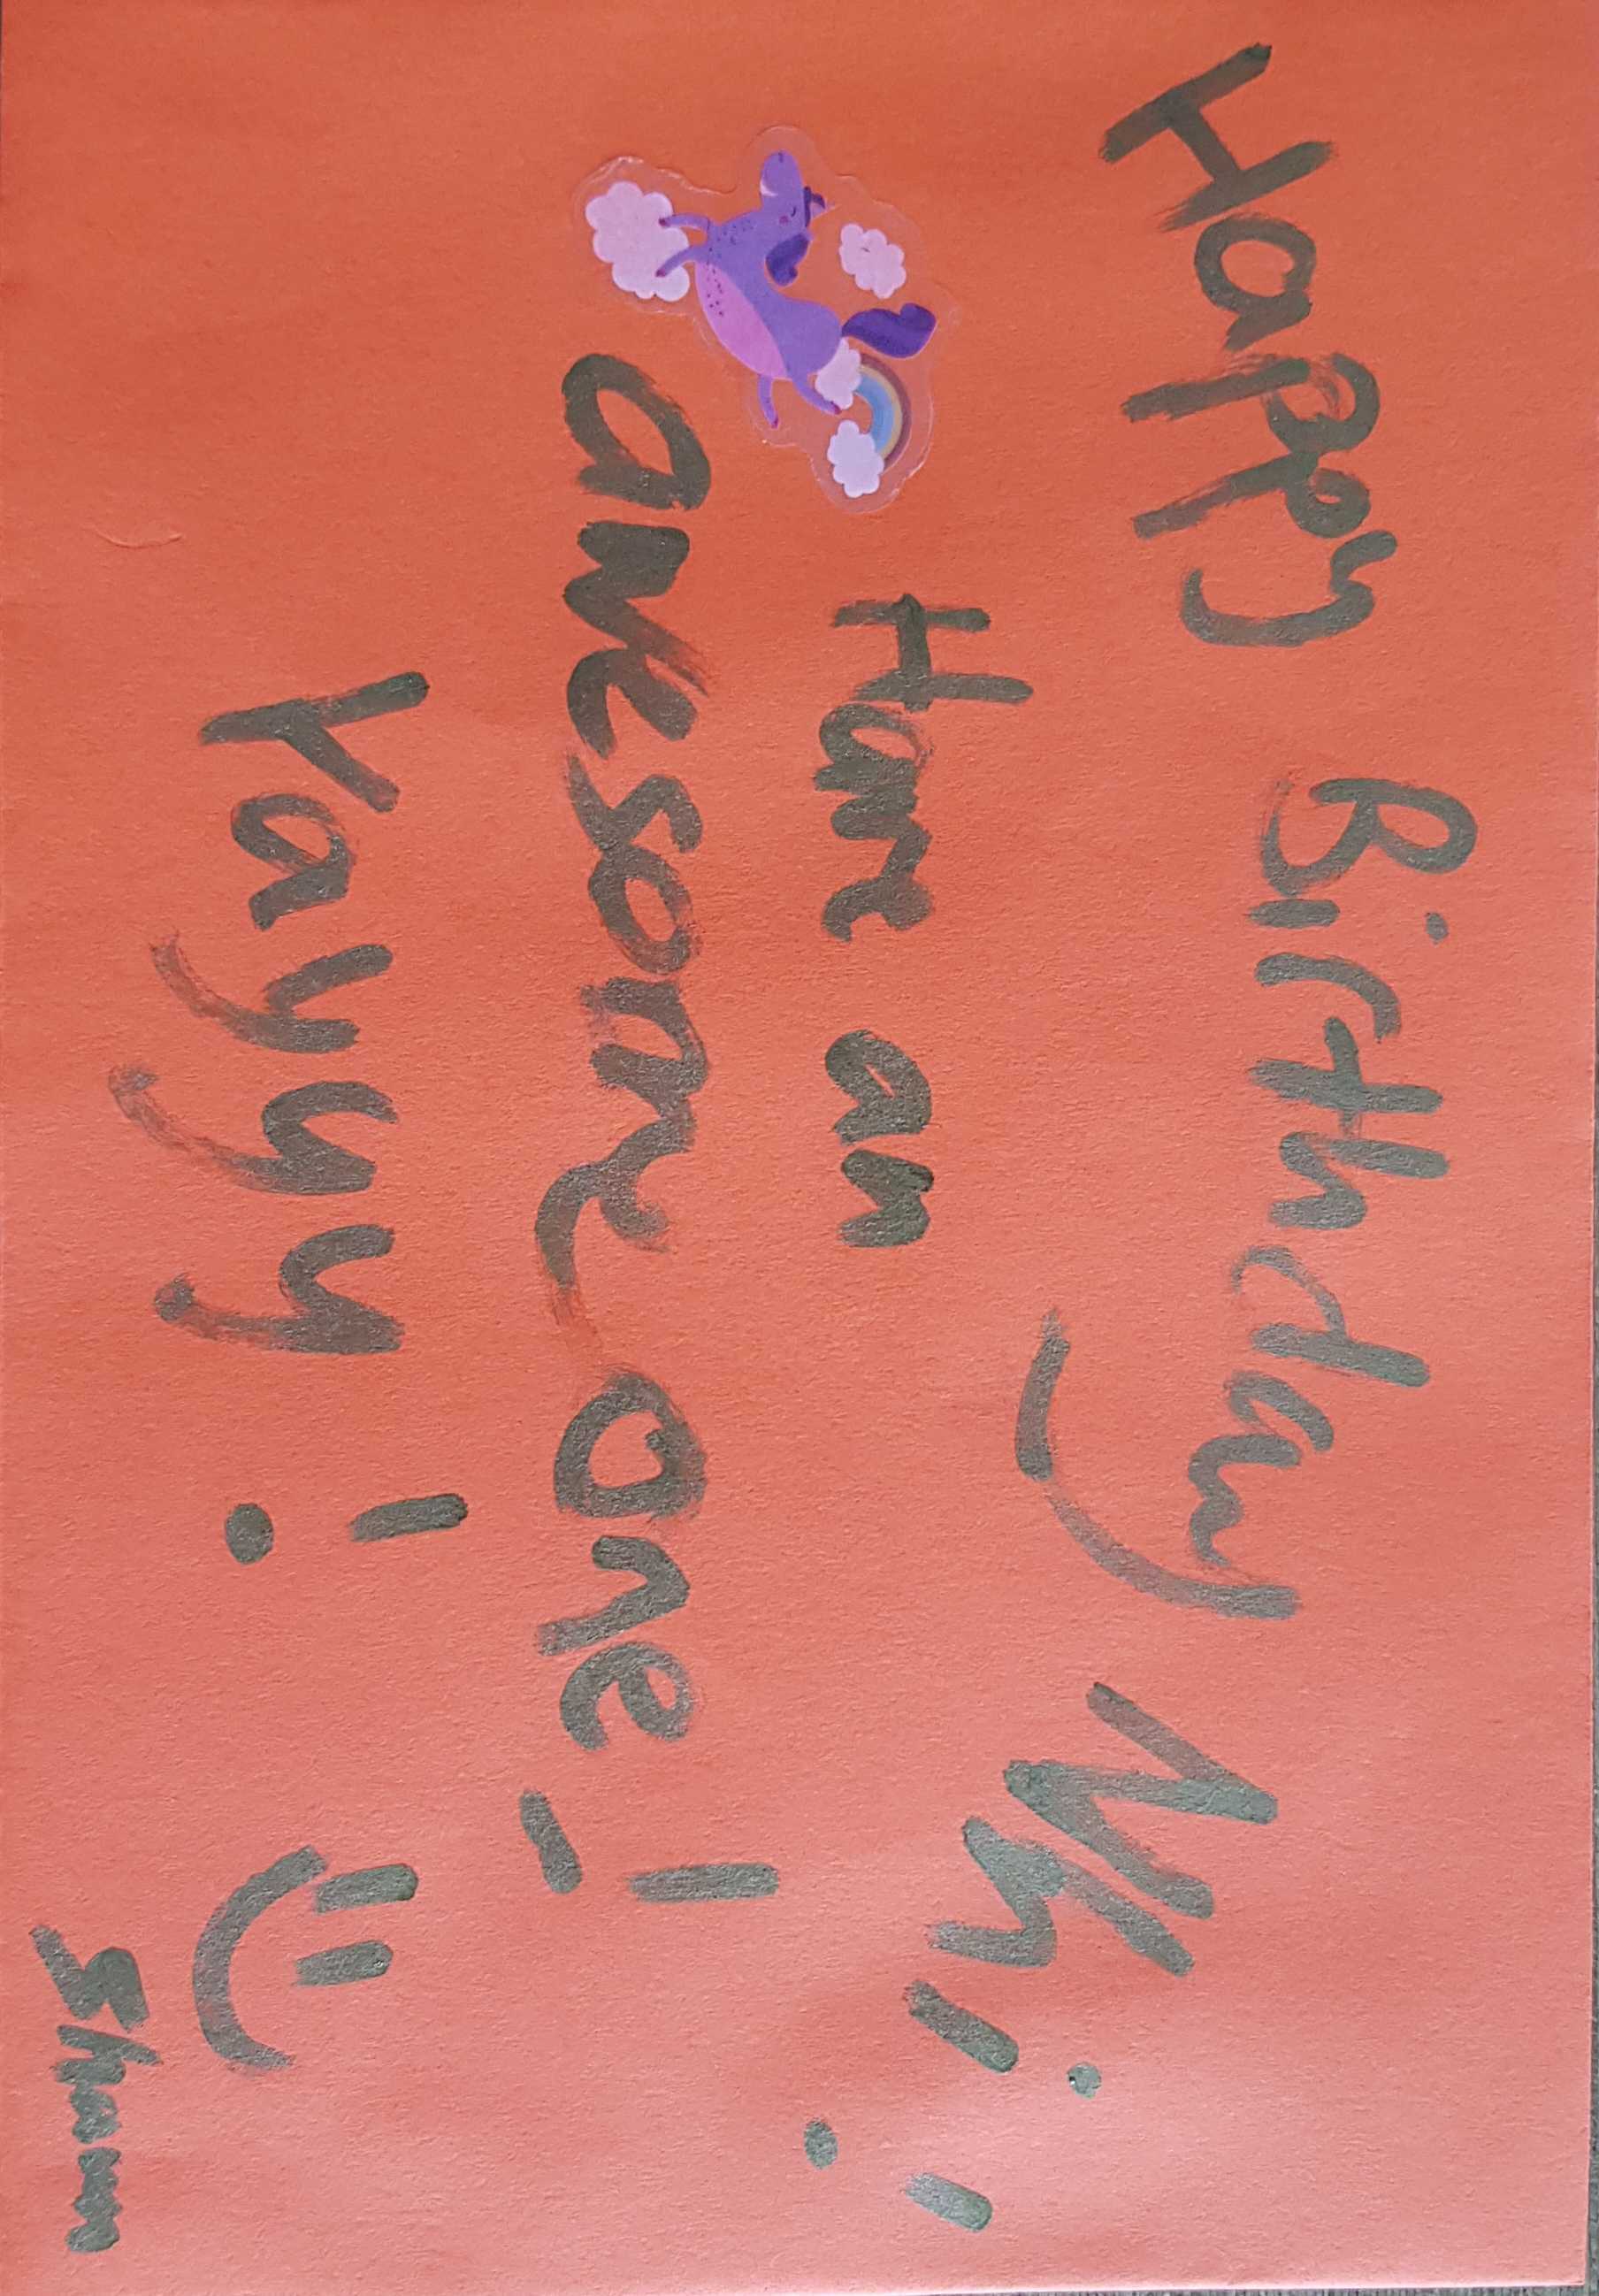 Happy Birthday Nhi!
Have an
awesome one!
Yayyy!
Shaun